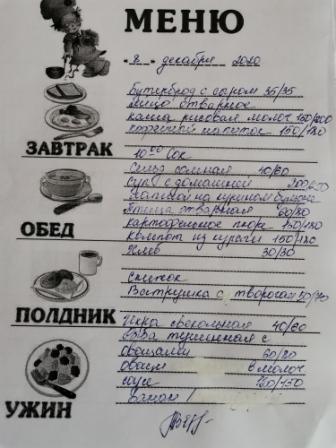 МЕНЮ
"8" декабря 2020
Бутерброд с сыром 35/35
Яйцо отварное
Каша рисовая молоч 150/200
кофейный напиток 150/180
ЗАВТРАК
10⁰⁰ Сок
Сельд соленая 40/60
Суп с домашней
лапшой на курином бульоне
Птица отварная 60/80
картофельное пюре 130/180
компот из кураги 150/180
Хлеб 30/30
ОБЕД
Снежок
Ватрушка с творогом 50/70
ПОЛДНИК
Икра свекольная 40/60
рыба тушенная с
овощами 60/80
в молоч
соусе 130/150
УЖИН